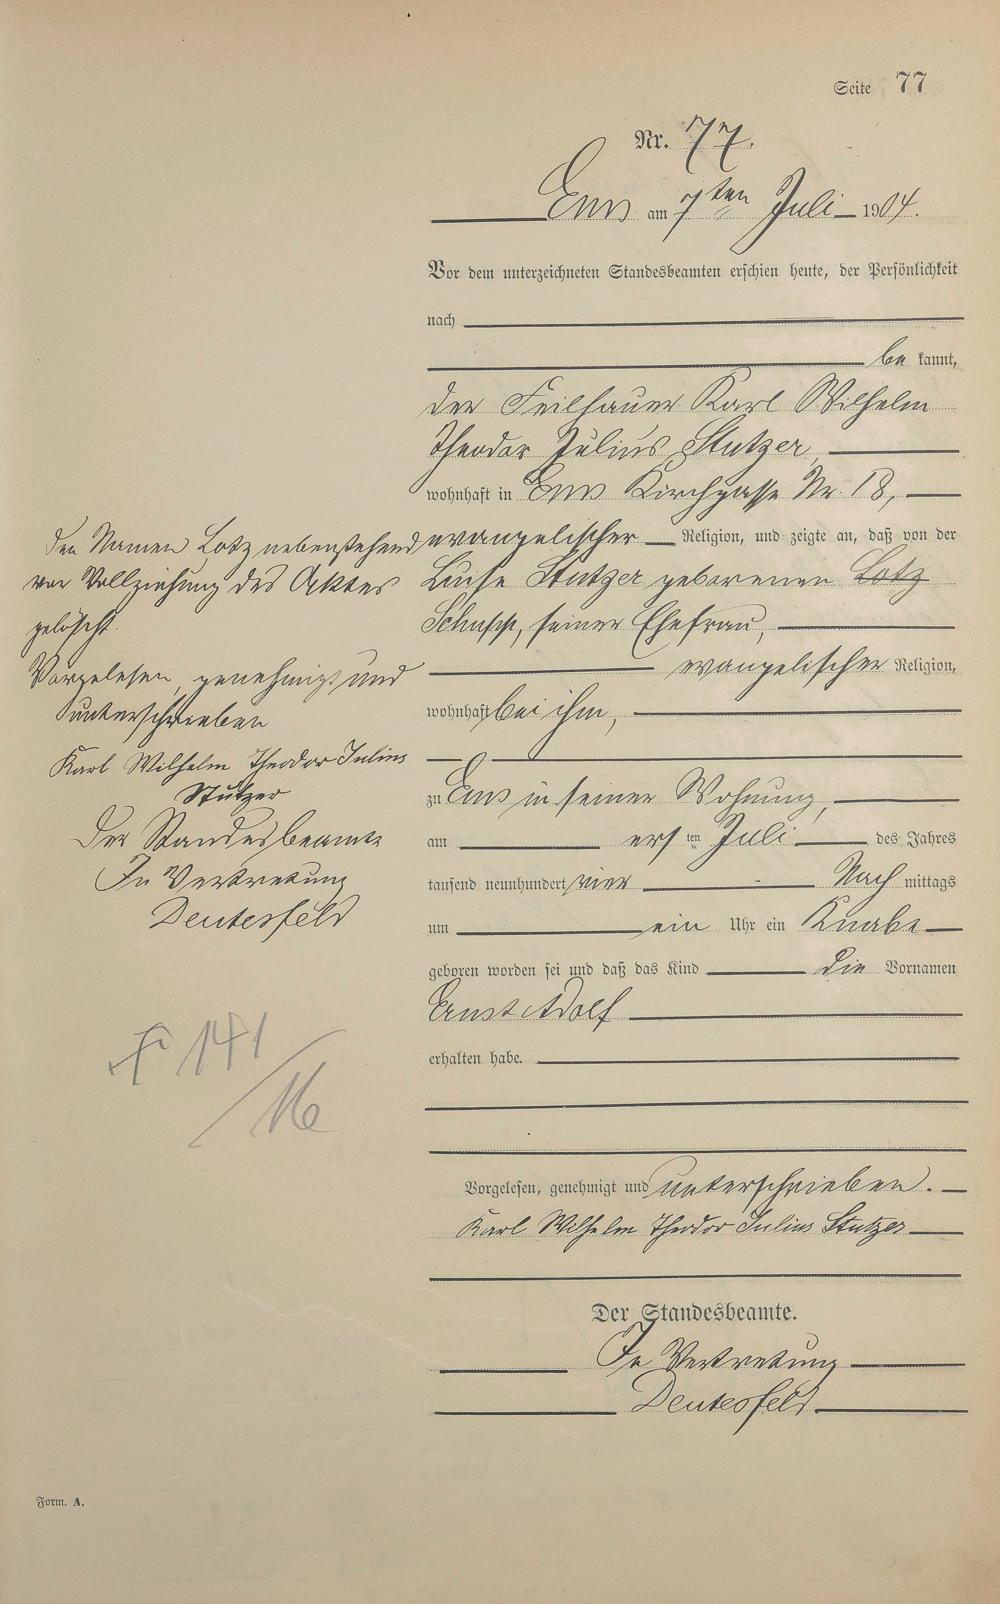 Seite 77
Nr. 77.
Ems am 7ten Juli 1904.
Vor dem unterzeichneten Standesbeamten erschien heute, der Persönlichkeit
nach
be kannt,
der Feilhauer Karl Wilhelm
Theodor Julius Stutzer,
wohnhaft in Ems Kirchgasse Nr. 18,
evangelischer Religion, und zeigte an, daß von der
Luise Stutzer geborenen Lotz
Schupp, seiner Ehefrau,
evangelischer Religion,
wohnhaft bei ihm,
zu Ems in seiner Wohnung,
am ersten Juli des Jahres
tausend neunhundert vier Nach mittags
um ein Uhr ein Knabe
geboren worden sei und daß das Kind die Vornamen
Ernst Adolf
erhalten habe.
Vorgelesen, genehmigt und unterschrieben.
Karl Wilhelm Theodor Julius Stutzer
Der Standesbeamte.
In Vertretung
Deutesfeld
den Namen Lotz nebenstehend
vor Vollziehung des Aktes
gelöscht.
Vorgelesen, genehmigt und
unterschrieben
Karl Wilhelm Theodor Julius
Stutzer
Der Standesbeamte
In Vertretung
Deutesfeld
141
/16
Form. A.